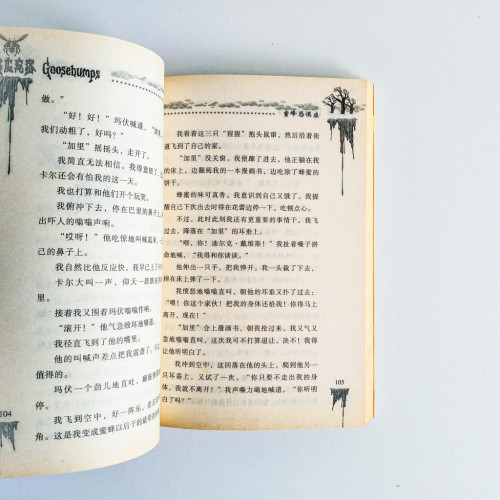 Goosebumps
做。”
“好！好！”玛伏喊道，“加里，
我们动粗了，好吗？”
“加里”摇摇头，走开了。
我简直无法相信。我得意狂了，
卡尔还会有怕我的这一天。
我也打算和他们开个玩笑。
我俯冲下去，停在巴里的鼻子上
出吓人的嗡嗡声响。
“哎呀！”他吃惊地叫喊起来，一
己的鼻子上。
我自然比他反应快。我早已上了
卡尔大叫一声，仰天一跤跌
接着我又围着玛伏嗡嗡作响，
“滚开！”他气急败坏地嚷道，
我径直飞到了他的嘴里。
他的叫喊声差点把我震聋了。
值得的。
玛伏一个劲儿地直吐，
停。
我飞到空中，好一阵乐，
角。这是我变成蜜蜂以后干的最
104
蜜蜂恐惧症
我看着这三只“猩猩”抱头鼠窜，然后沿着街
道飞到了自己的家。
“加里”没关窗。我便蹿了进去，他正躺在我
的床上，边翻阅我的一本漫画书，边吃涂了蜂蜜的
饼干。
蜂蜜的味可真香。我意识到自己又饿了，我提
醒自己下次出去时在花蕾边停一下，吃顿点心。
不过，此时此刻我还有更重要的事情干。我飞
过去，降落在“加里”的耳垂上。
“喂，你！迪尔克·戴维斯！”我扯着嗓子拼
命地喊，“我得和你谈谈。”
他伸出一只手，把我弹开。我一头栽了下去，
掉在床上弹了一下。
我愤怒地嗡嗡直叫，朝他的耳垂又扑了过去：
“喂！你这个家伙！把我的身体还给我！你得马上
离开，现在！”
“加里”合上漫画书，朝我抢过来。我又气又
急地嗡嗡直叫，这次我可不打算退让。决不！我得
让他听明白了。
我冲到空中，这回落在他的头上，爬到他另一
只耳垂上，又试了一次。“你只要不走出我的身
体，我就不离开！”我声嘶力竭地喊道。“你听明
白了吗？”
105